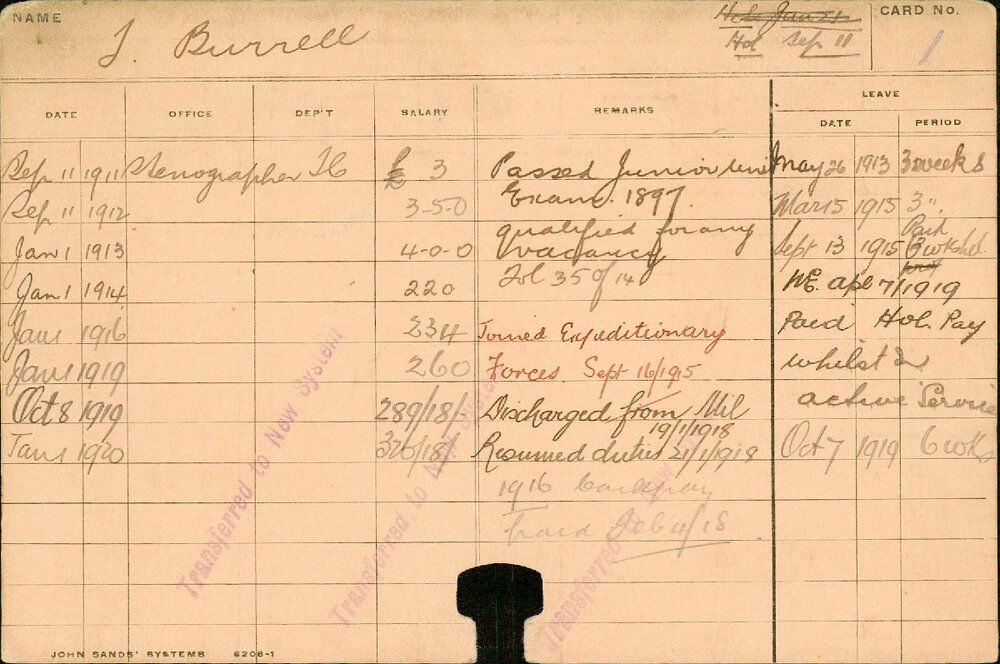 NAME
J. Burrell
Hol Jan 21
Hol Sep 11
CARD No.
1
DATE OFFICE DEP'T SALARY REMARKS LEAVE
DATE PERIOD
Sep 11 1911 Stenographer IC £ 3 Passed Junior Uni May 26 1913 3 weeks
Sep 11 1912 3-5-0 Exam. 1897. Mar 15 1915 3 "
Jan 1 1913 4-0-0 qualified for any Sept 13 1915 Paid
vacancy
Jan 1 1914 220 Fol 35 of 14 WE. Apl 7/1919
Jan 1 1916 234 Joined Expeditionary Paid Hol. Pay
Jan 1 1919 260 Forces Sept 16/1915 whilst on
Oct 8 1919 289/18/- Discharged from Mil active Service
19/1/1918
Jan 1 1920 320/18/- Resumed duties 21/1/1918 Oct 7 1919 6 wks
1916
Feb 4/18
Transferred to New System
Transferred to New System
Transferred to New
JOHN SANDS' SYSTEMS 6206-1